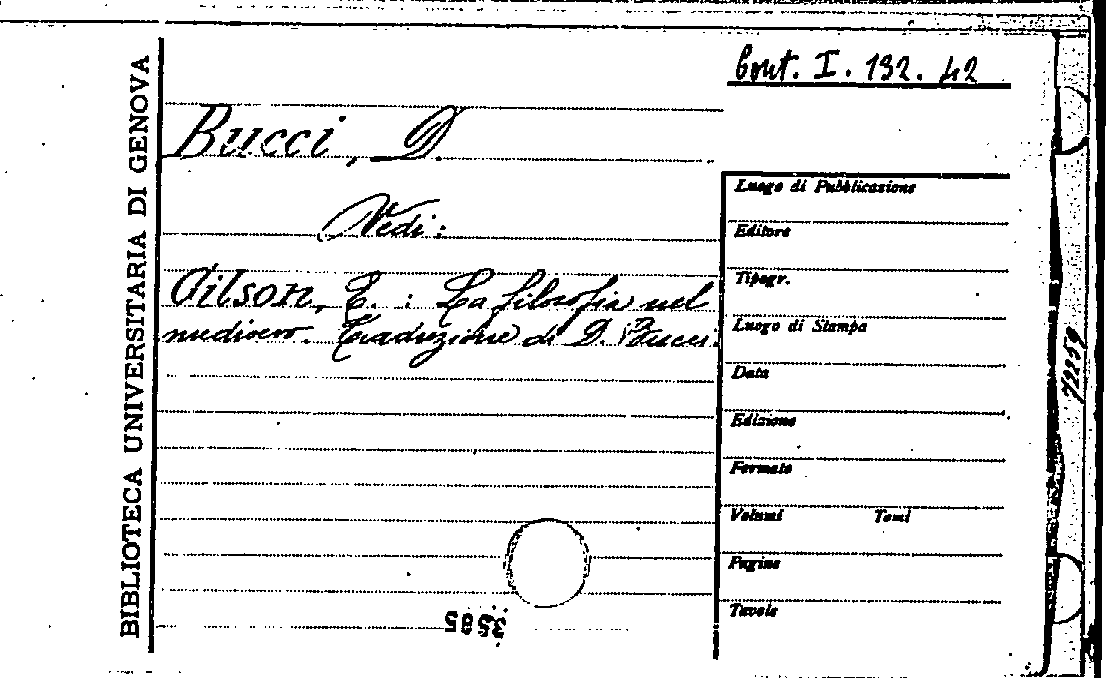 BIBLIOTECA UNIVERSITARIA DI GENOVA
Cont. I. 132. 42
Bucci, D.
Vedi:
Gilson, E. : La filosofia nel
medioevo. Traduzione di D. Bucci.
Luogo di Pubblicazione
Editore
Tipogr.
Luogo di Stampa
Data
Edizione
Formato
Volumi Tomi
Pagine
Tavole
3585
72259